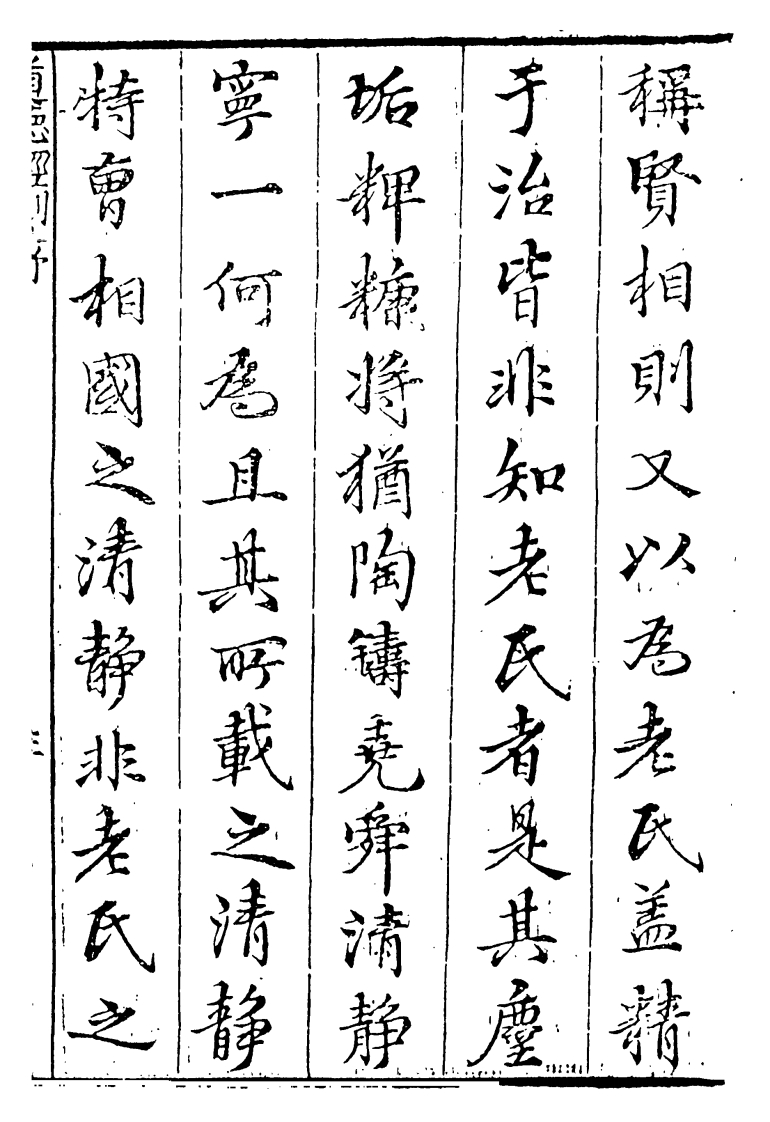 稱賢相則又以為老氏盖精
于治皆非知老氏者是其塵
垢粃糠將猶陶鑄堯舜清靜
寧一何為且其所載之清靜
特曹相國之清靜非老氏之
道德經刻序
三